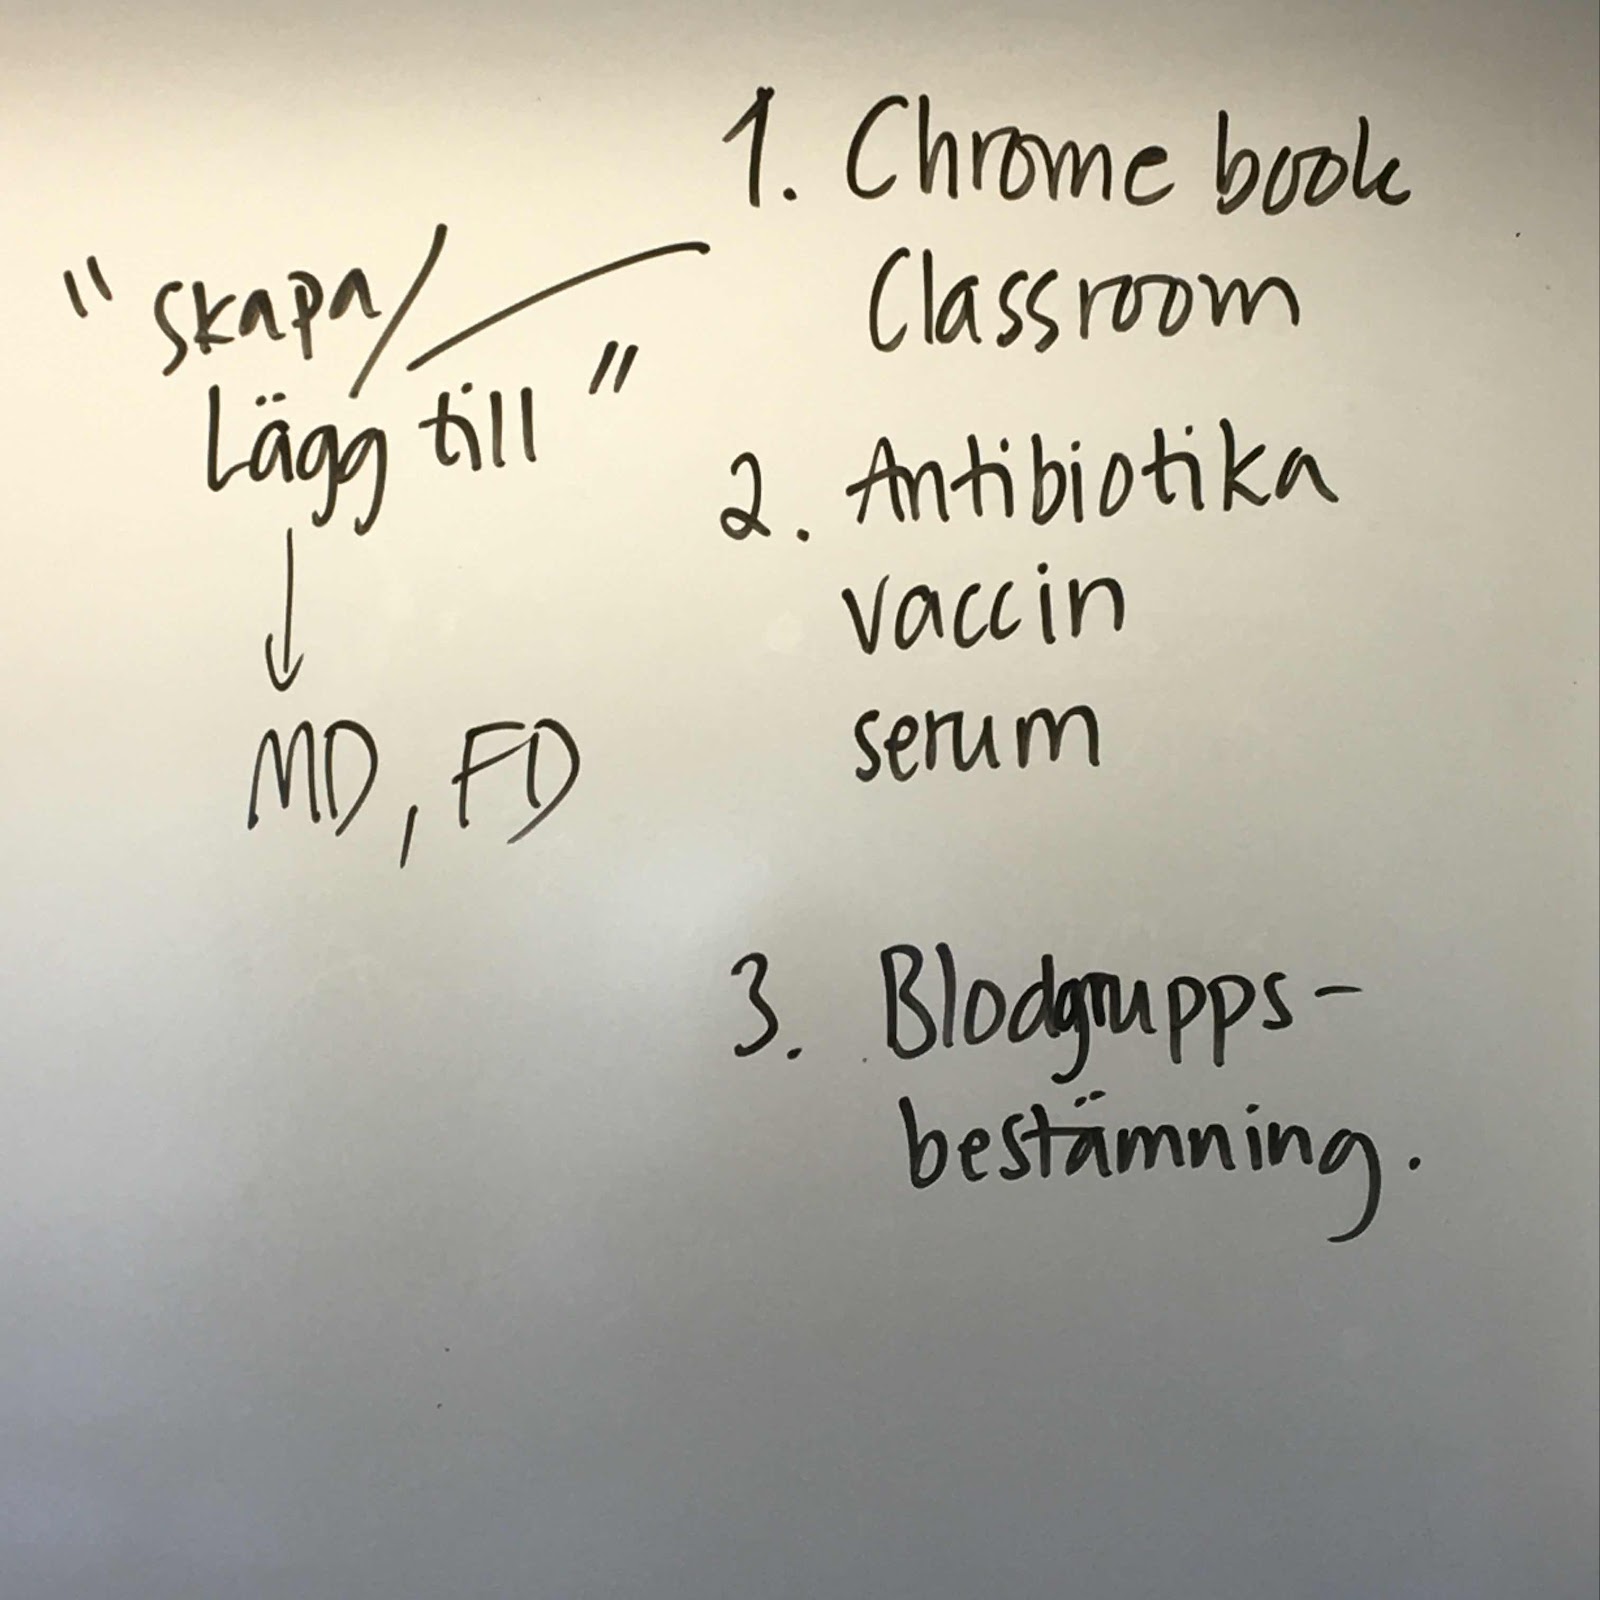 1. Chrome book
Classroom
"skapa/
Lägg till"
MD, FD
2. Antibiotika
vaccin
serum
3. Blodgrupps-
bestämning.